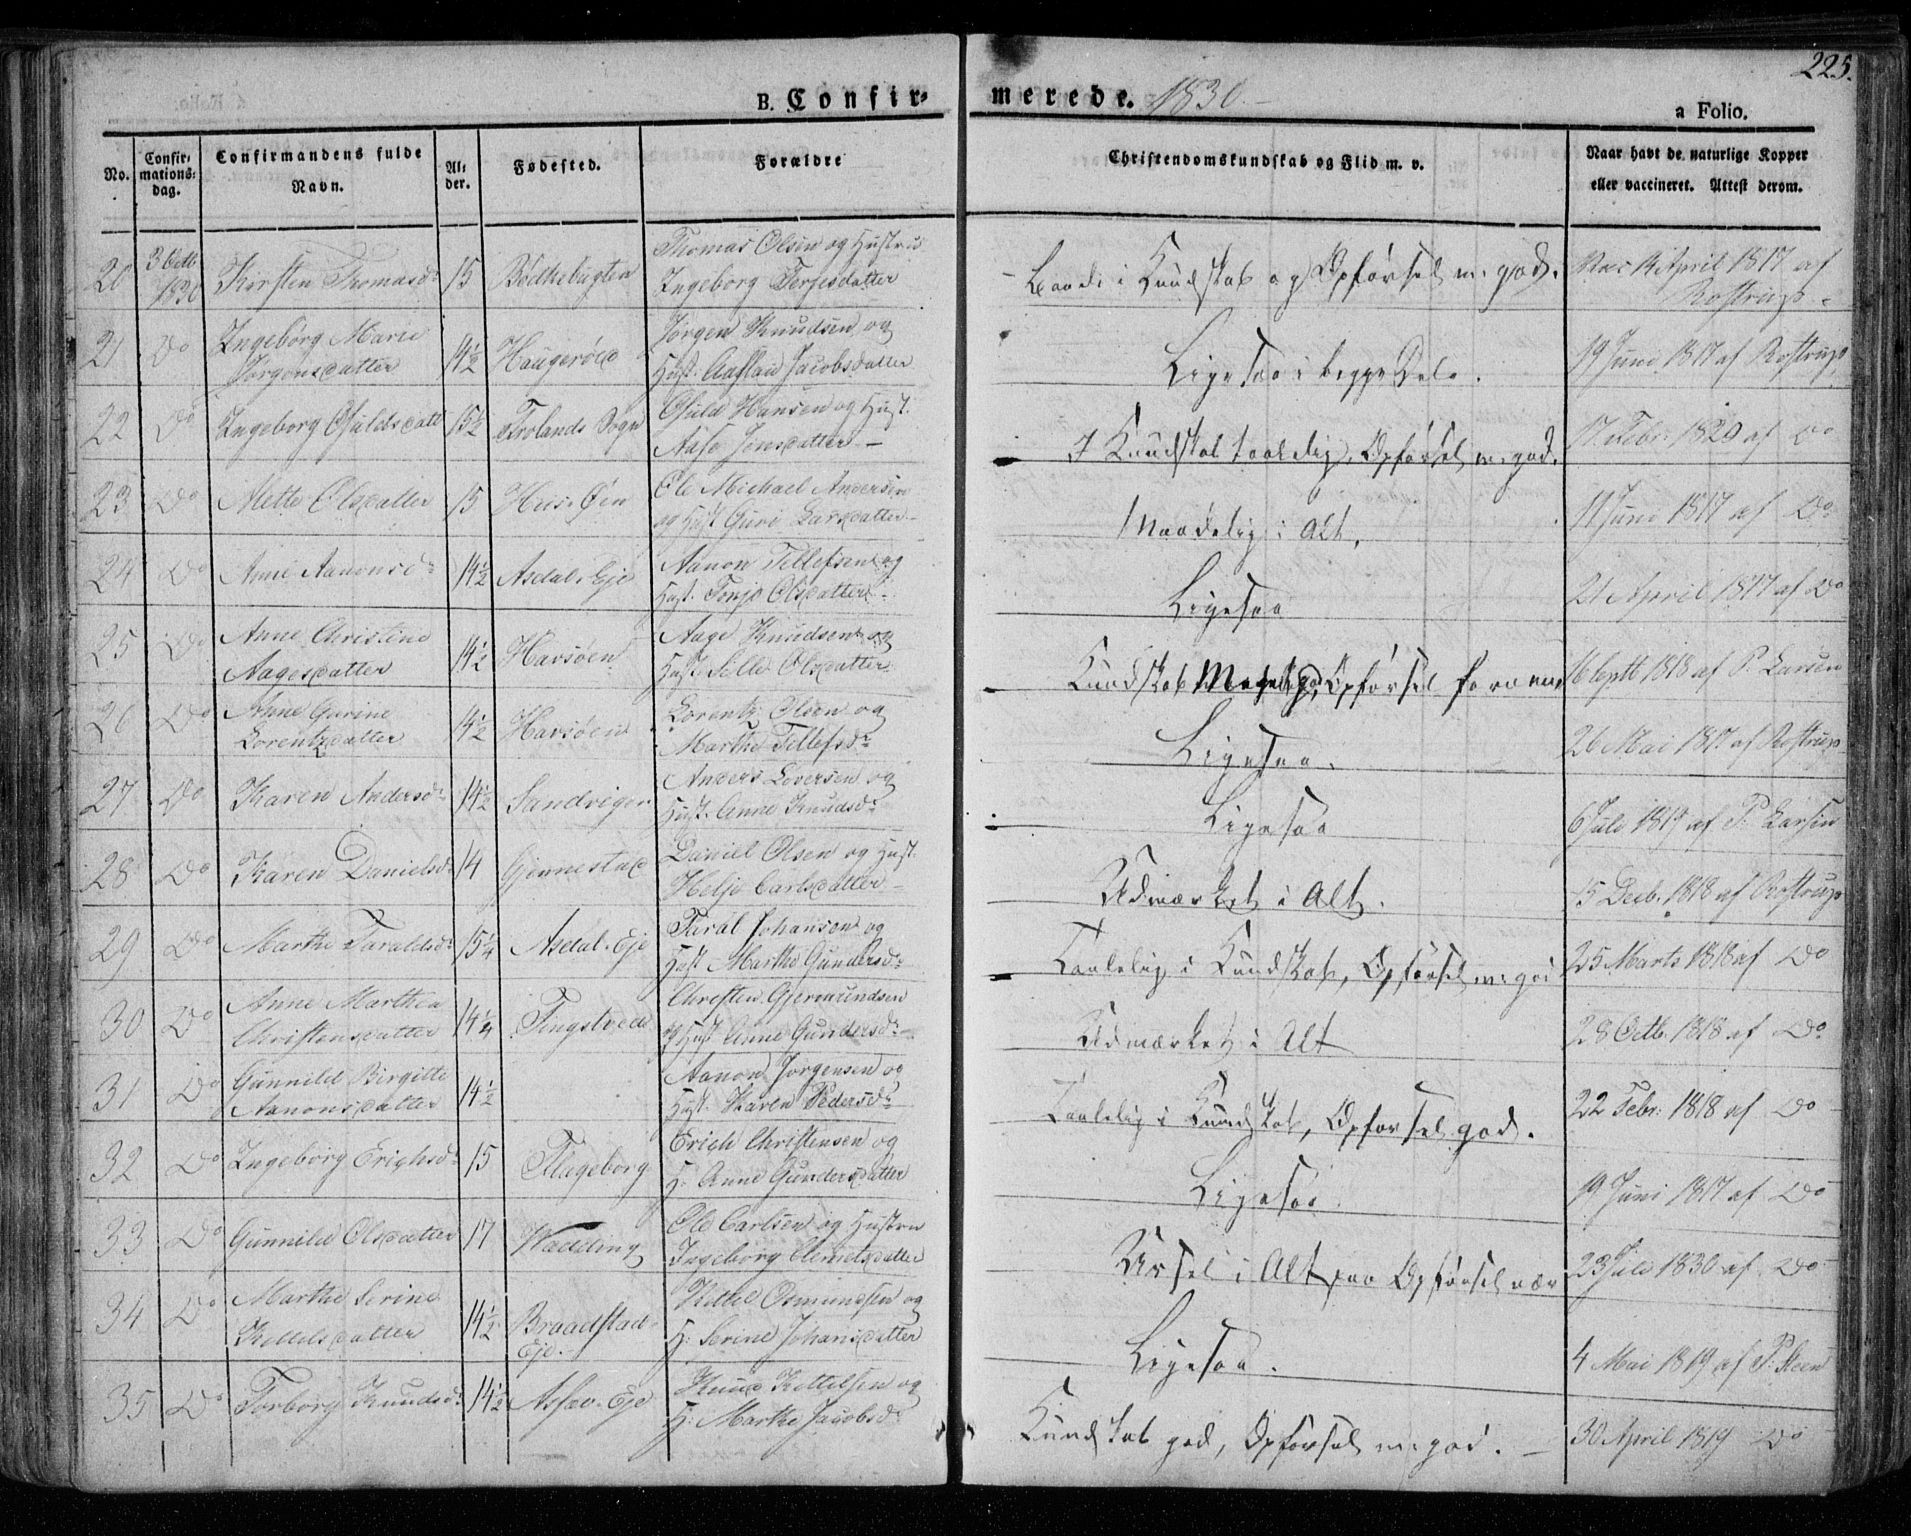 225.
B. Confir-merede. 1830.
a Folio.
No.
Confir-
mations-
dag.
Confirmandens fulde
Navn.
Al-
der.
Fødested.
Forældre
Christendomskundskab og Flid m. v.
Naar havt de naturlige Kopper
eller vaccineret. Attest derom.
20 3 Octb. 1830 Kirsten Thomasd: 15
Thomas Olsen og Hustru
Ingeborg Terjesdatter
Baade i Kundskab og Opførsel m. god.
Vac. 14 April 1817 af
Rostrup
21 Do Ingeborg Marie
Jørgensdatter 14½ Haugerød
Jørgen Knudsen og
Hust. Jacobsdatter
Ligesaa i begge Dele.
19 Juni 1817 af Rostrup
22 Do Ingeborg Osuldsdatt 15½ Sogn
Osuld Hansen og Hust.
Aase Jensdatter
I Kundskab taalelig, Opførsel m. god.
17 Febr. 1820 af Do
23 Do Mette Olsdatter 15
Ole Michael Andersen
og Hust Guri Larsdatter
Maadelig i Alt.
11 Juni 1817 af Do
24 Do Anne Aanonsd: 14½ Asdal-Eje
Aanon Tellefsen og
Hust. Tonje Olsdatter
Ligesaa
21 April 1817 af Do
25 Do Anne Christine
Aagesdatter 14½ Havsøen
Aage Knudsen og
Hust. Sille Olsdatter
Kundskab Meget god, Opførsel
16 Septb 1818 af P. Larsen
26 Do Anne Gurine
Lorentzdatter 14½ Havsøen
Lorentz Olsen og
Marthe Tellefsd:
Ligesaa.
26 Mai 1817 af Rostrup
27 Do Karen Andersd: 14½ Sandvigen
Anders Seversen og
Hust. Anne Knudsd:
Ligesaa
6 Juli 1819 af P. Larsen
28 Do Karen Danielsd: 14 Gjennestad
Daniel Olsen og Hust.
Helje Carlsdatter
Udmærket i Alt.
15 Decb. 1818 af Rostrup
29 Do Marthe Taraldsd: 15¼ Asdal-Eje
Taral Johansen og
Hust Marthe Gundersd:
Taalelig i Kundskab, Opførsel m. god
25 Marts 1818 af Do
30 Do Anne Marthea
Christensdatter 14¼ Tingstvedt
Christen Gjermundsen
og Hust Anne Gundersd:
Udmærket i Alt
28 Octb. 1818 af Do
31 Do Gunnild Birgitte
Aanonsdatter 14½
Aanon Jørgensen og
Hust. Karen Pedersd:
Taalelig i Kundskab, Opførsel god.
22 Febr: 1818 af Do
32 Do Ingeborg Erighsd: 15 Flageborg
Erigh Christensen og
H. Anne Gundersdatter
Ligesaa.
19 Juni 1817 af Do
33 Do Gunnild Olsdatter 17 Wædding
Ole Carlsen og Hustru
Ingeborg Clemetsdatter
Ussel i Alt
23 Juli 1830 af Do
34 Do Marthe Serine
Kittelsdatter 14½ Braadstad-
Eje.
Kittel Osmundsen og
H: Serine Johansdatter
Ligesaa.
4 Mai 1819 af P: Steen
35 Do Torborg Knudsd: 14½ Assev-Eje
Knud Kittelsen og
H. Marthe Jacobsd:
Kundskab god, Opførsel m. god.
30 April 1819 Do